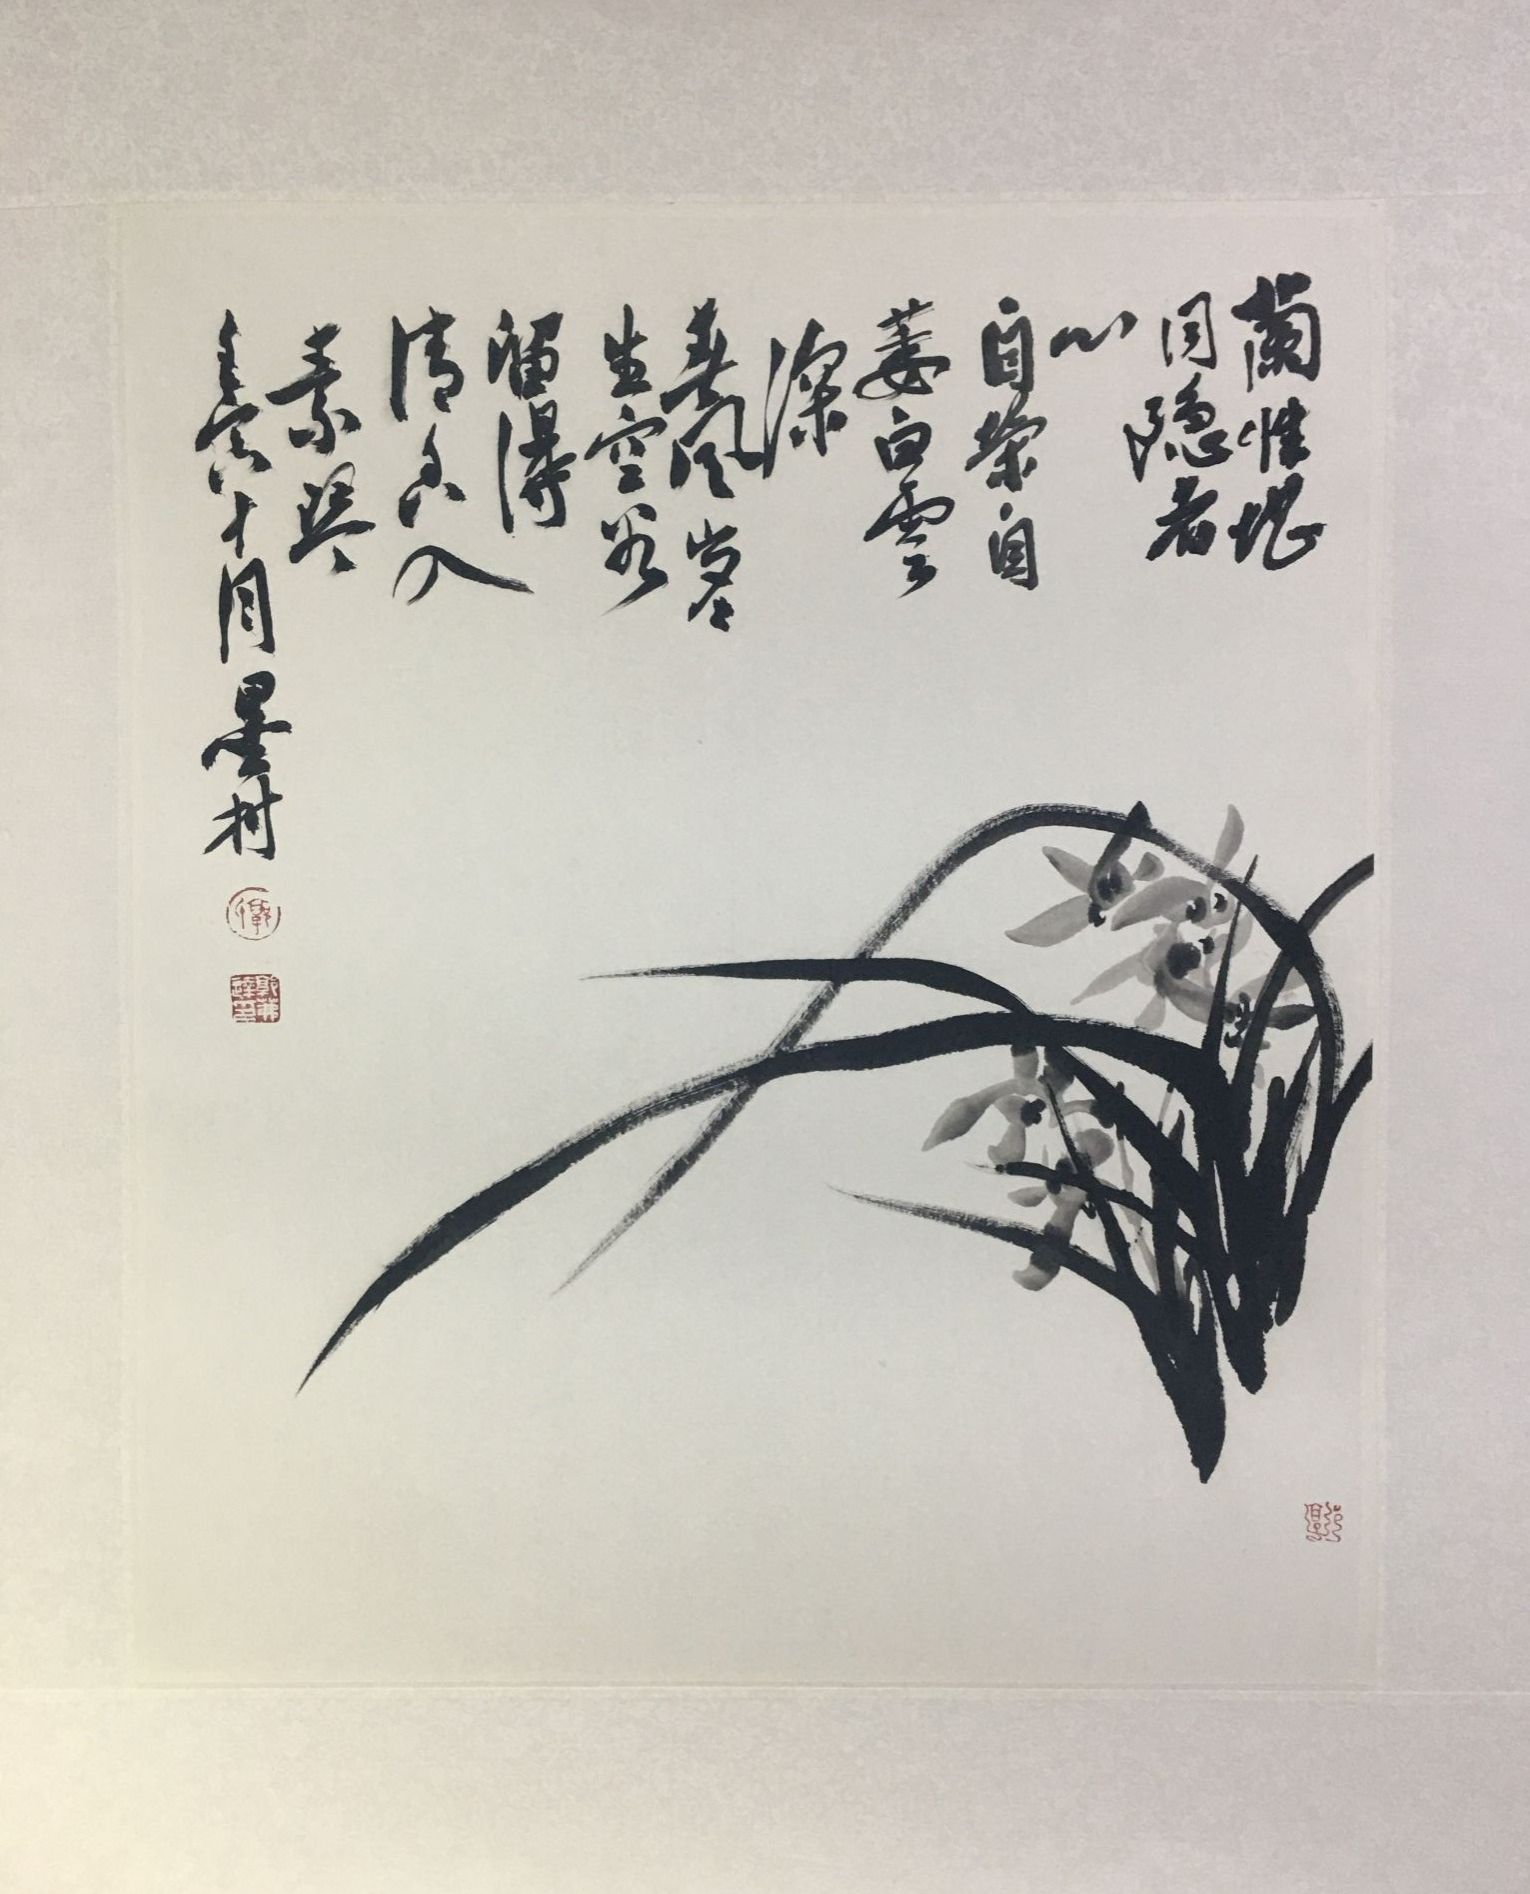 蘭性堪
同隐者
心
自榮自
萎白雲
深
春風岁々
生空谷
留得
清香入
素琴
壬寅十月墨村